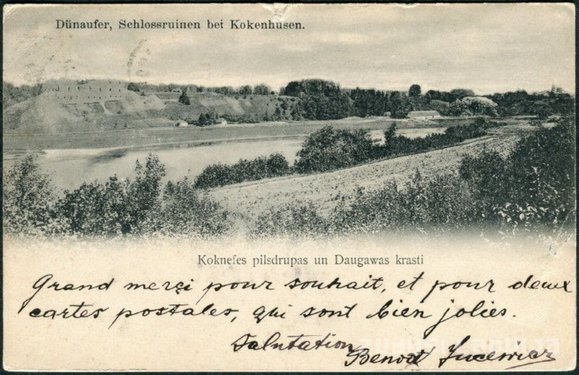 Dünaufer, Schlossruinen bei Kokenhusen.
Koknefes pilsdrupas un Daugawas krasti
Grand merçi pour souhait, et pour deux
cartes postales, qui sont bien jolies.
Salutation
Benoit Jucewicz